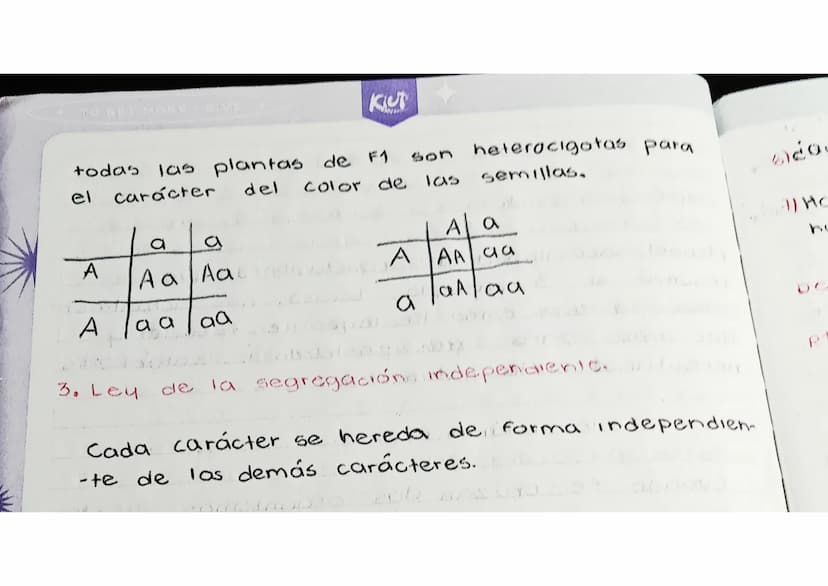 KIUT
todas las plantas de F1 son heterocigotas para
el carácter del color de las semillas.
a a
A Aa Aa
A aa aa
A a
A AA aa
a aA aa
3. Ley de la segregación independiente.
Cada carácter se hereda de forma independien-
-te de los demás carácteres.
1) Ho